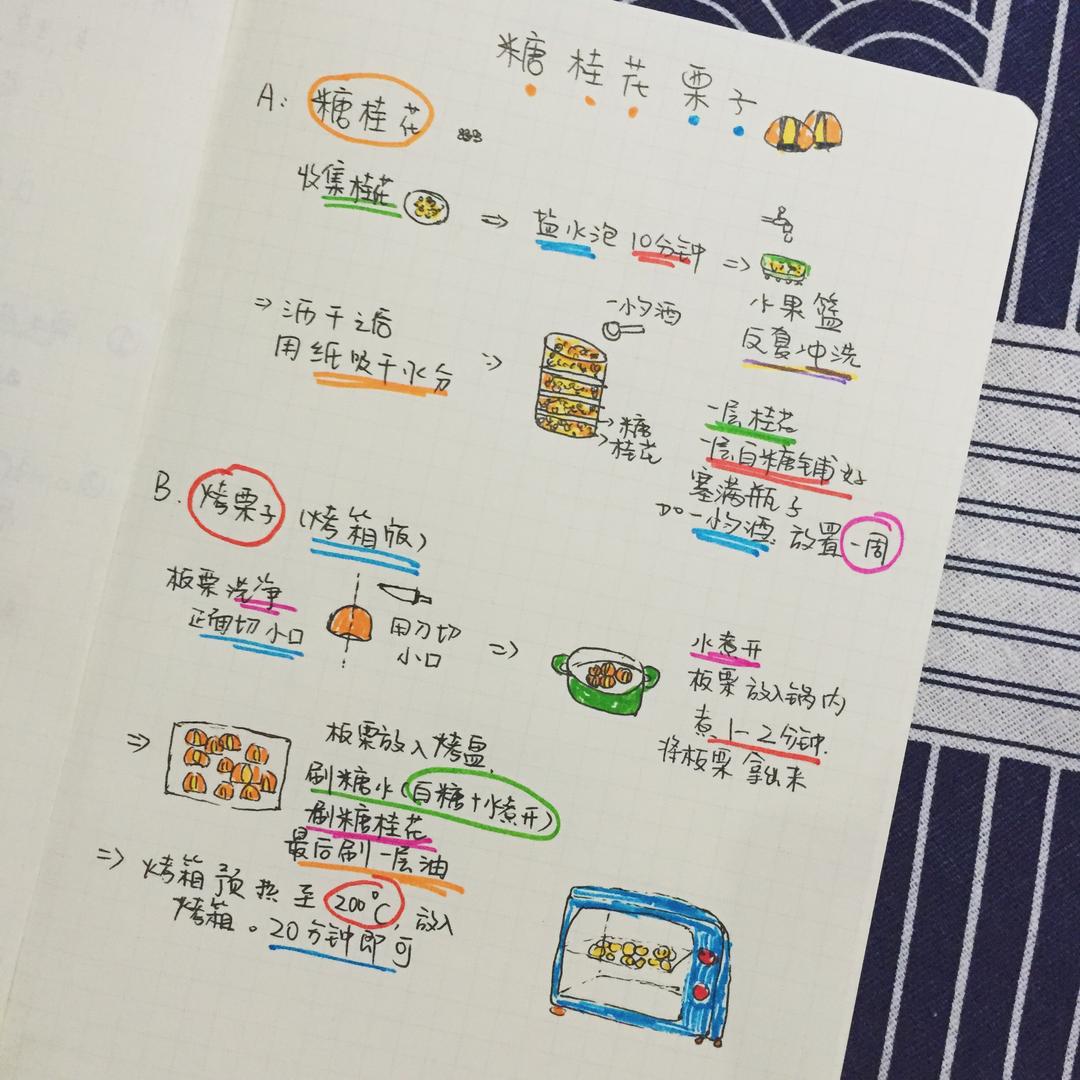 糖桂花栗子
A: 糖桂花
收集桂花
⇒ 盐水泡10分钟
⇒
水果篮
反复冲洗
⇒ 沥干之后
用纸吸干水分
⇒
一小勺酒
→糖
→桂花
一层桂花
一层白糖铺好
塞满瓶子
加一小勺酒. 放置一周
B. 烤栗子 (烤箱版)
板栗洗净
正面切小口
用刀切
小口
⇒
水煮开
板栗放入锅内
煮1-2分钟.
将板栗拿出来
⇒
板栗放入烤盘.
刷糖水(白糖+水煮开)
刷糖桂花
最后刷一层油
⇒ 烤箱预热至200℃, 放入
烤箱。20分钟即可